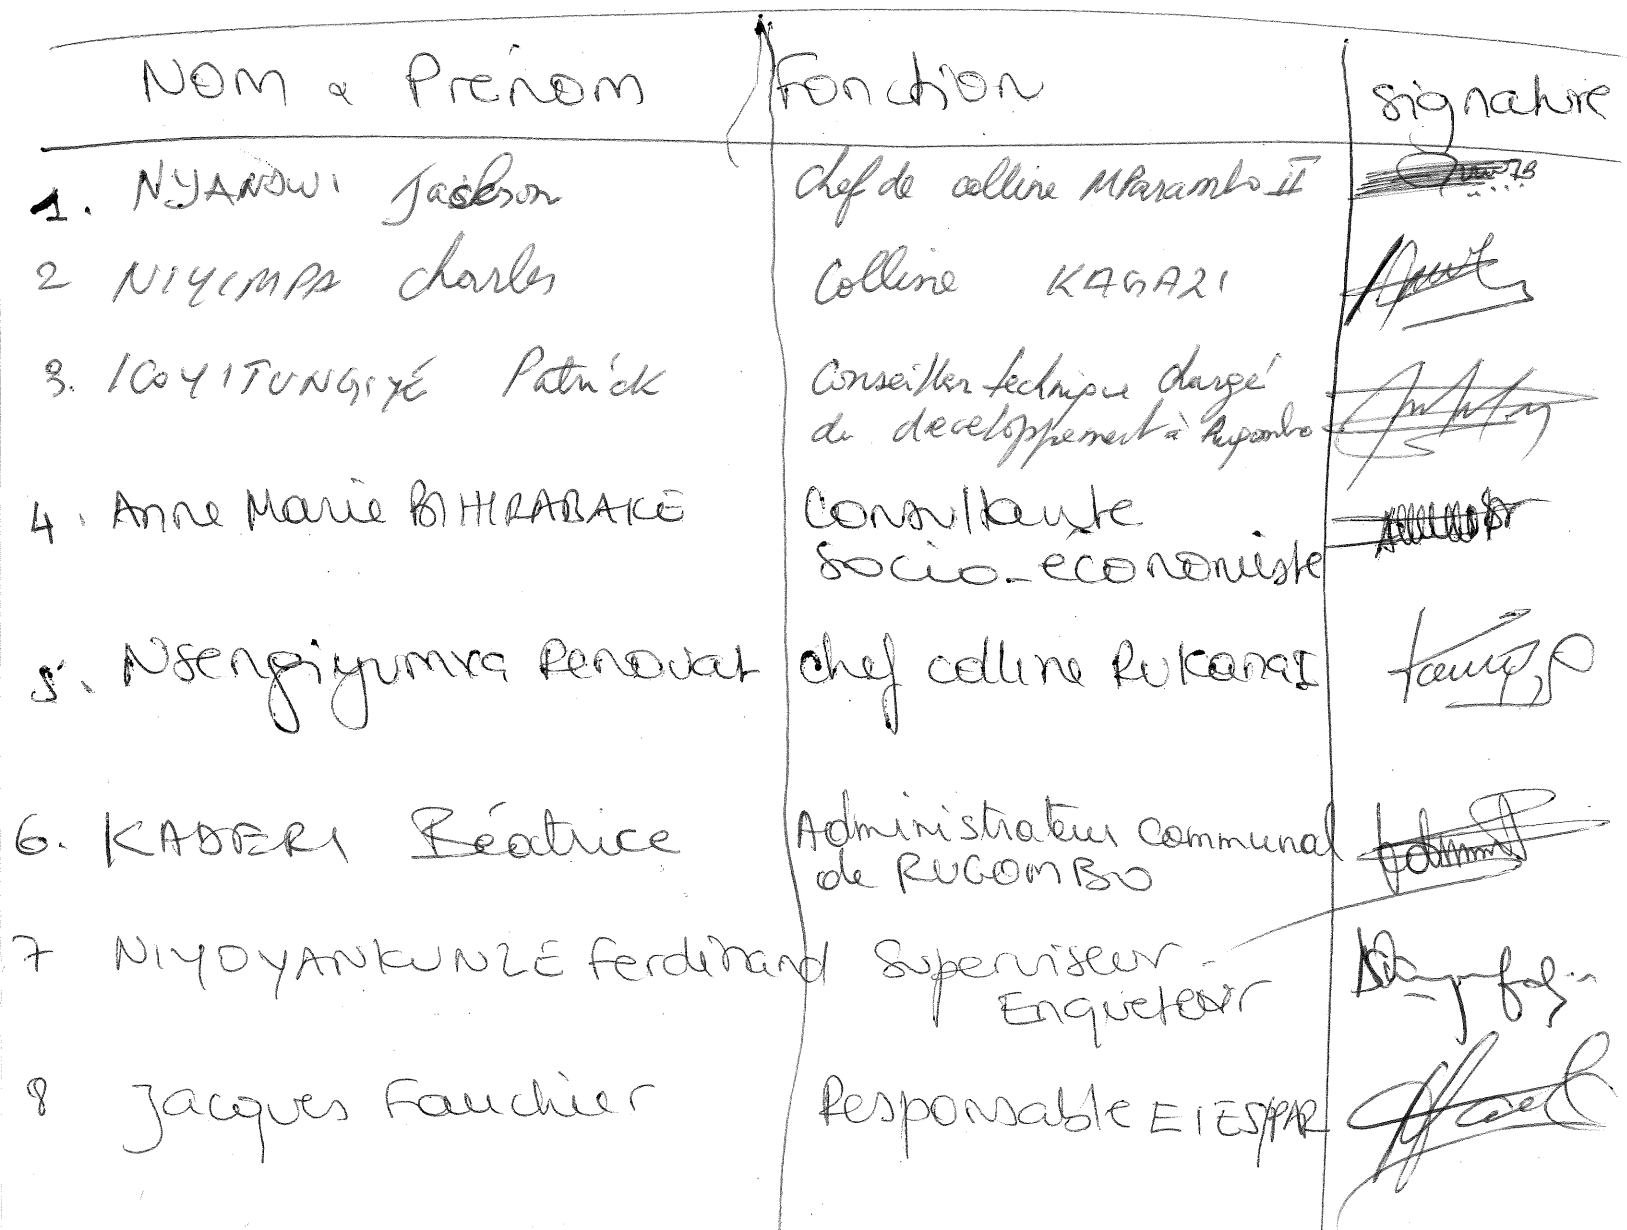 NOM & Prénom Fonction Signature
1. NYANDWI Jackson Chef de colline MParambo II
2 NIYIMPA Charles Colline KAGAZI
3. ICOYITUNGIYE Patrick Conseiller technique chargé
du developpement à Rugombo
4. Anne Marie BIHIRABAKE Consultante
Socio-économiste
5. Nsengiyumva Renovat chef colline Rukana I
6. KADERI Béatrice Administrateur Communal
de RUGOMBO
7 NIYOYANKUNZE Ferdinand Superviseur -
Enquêteur
8 Jacques Fauchier Responsable EIES/PAR